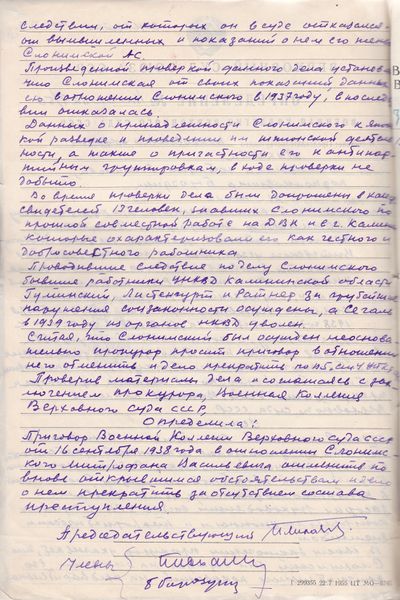 следствии, от которых он в суде отказался
от вымышленных и показаний о нем его жены
Слонимской АС.
Произведенной проверкой данного дела установлено
что Слонимская от своих показаний, данных
ею в отношении Слонимского в 1937 году, впослед
вии отказалась.
Данных о принадлежности Слонимского к япон
ской разведке и проведении им шпионской деятель
ности, а также о причастности его к антипар
тийным группировкам, в ходе проверки не
добыто.
Во время проверки дела были допрошены в кач
свидетелей 13 человек, знавших Слонимского по
прошлой совместной работе на ДВК и в г. Калин
которые охарактеризовали его как честного и
добросовестного работника.
Проводившие следствие по делу Слонимского
бывшие работники УНКВД Калининской области
Гуминский, Листенгурт и Ратнер за грубейшие
нарушения соцзаконности осуждены, а Сегаль
в 1939 году из органов НКВД уволен.
Считая, что Слонимский был осужден неоснова
тельно прокурор просит приговор в отношении
него отменить и дело прекратить по
Проверив материалы дела и соглашаясь с зак
лючением прокурора, Военная Коллегия
Верховного суда СССР
Определила:
Приговор Военной Коллегии Верховного суда СССР
от 16 сентября 1938 года в отношении Слоним
ского Митрофана Васильевича отменить по
вновь открывшимся обстоятельствам и дело
о нем прекратить за отсутствием состава
преступления.
Председательствующий
Члены
Г 299355 22.7 1955 ЦТ МО